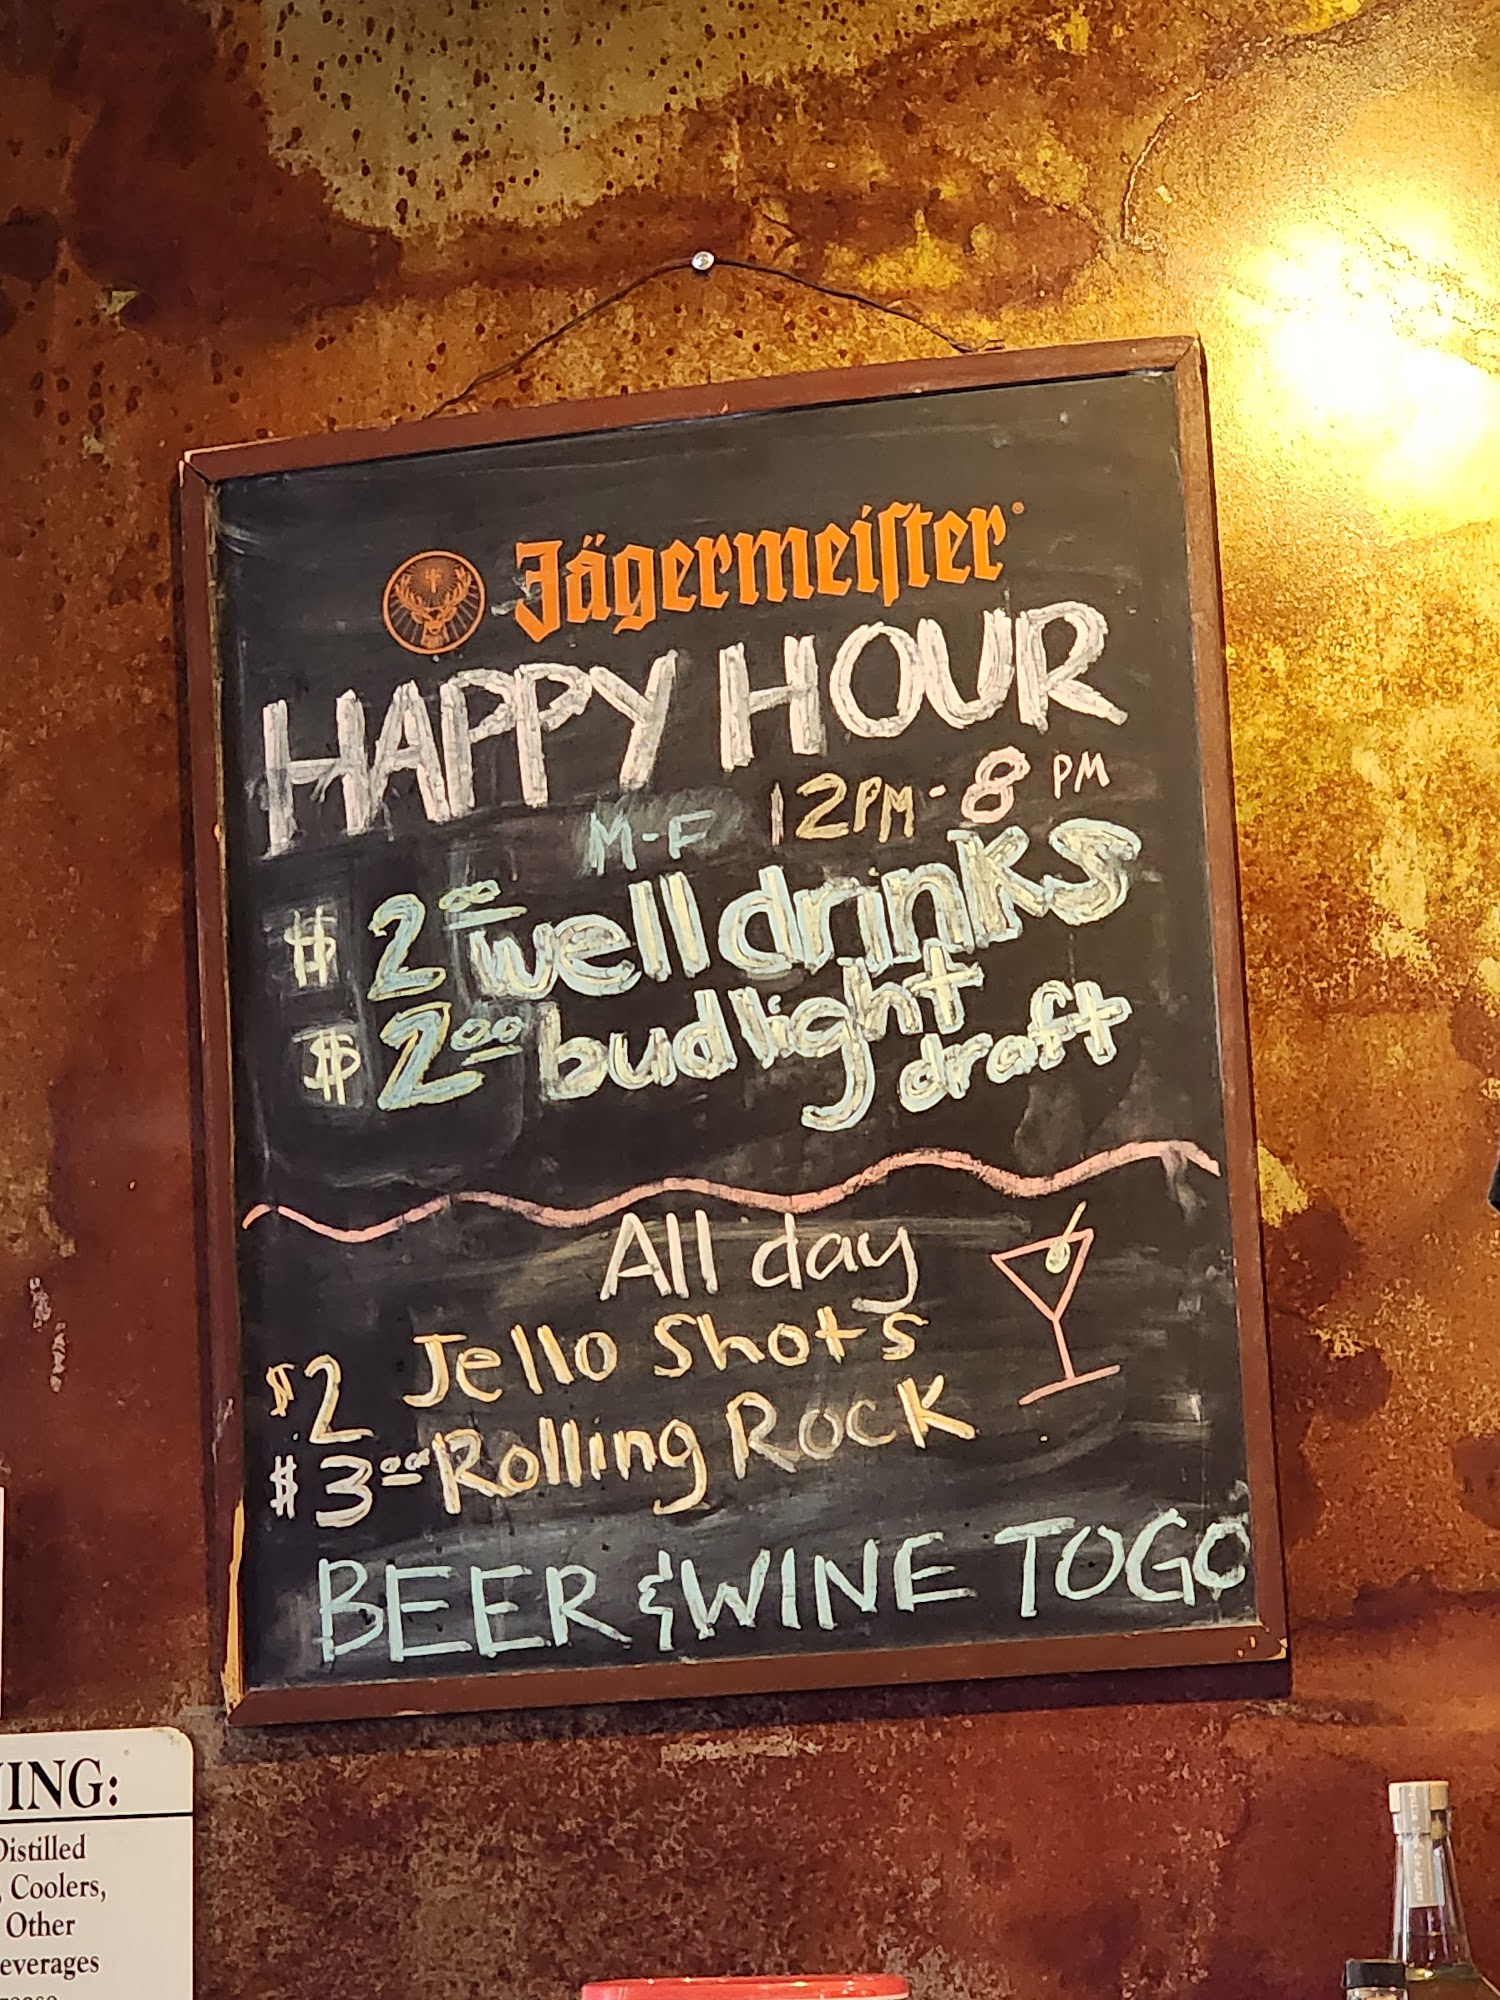 Jägermeister®
HAPPY HOUR
M-F 12PM - 8 PM
$2.00 well drinks
$2.00 bud light
draft
All day
$2 Jello Shots
$3.00 Rolling Rock
BEER & WINE TOGO
Distilled
Coolers,
Other